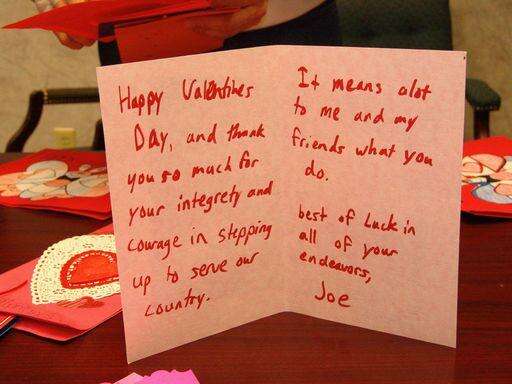 Happy Valentines
Day, and thank
you so much for
your integrety and
courage in stepping
up to serve our
country.
It means alot
to me and my
friends what you
do.
best of Luck in
all of your
endeavors,
Joe